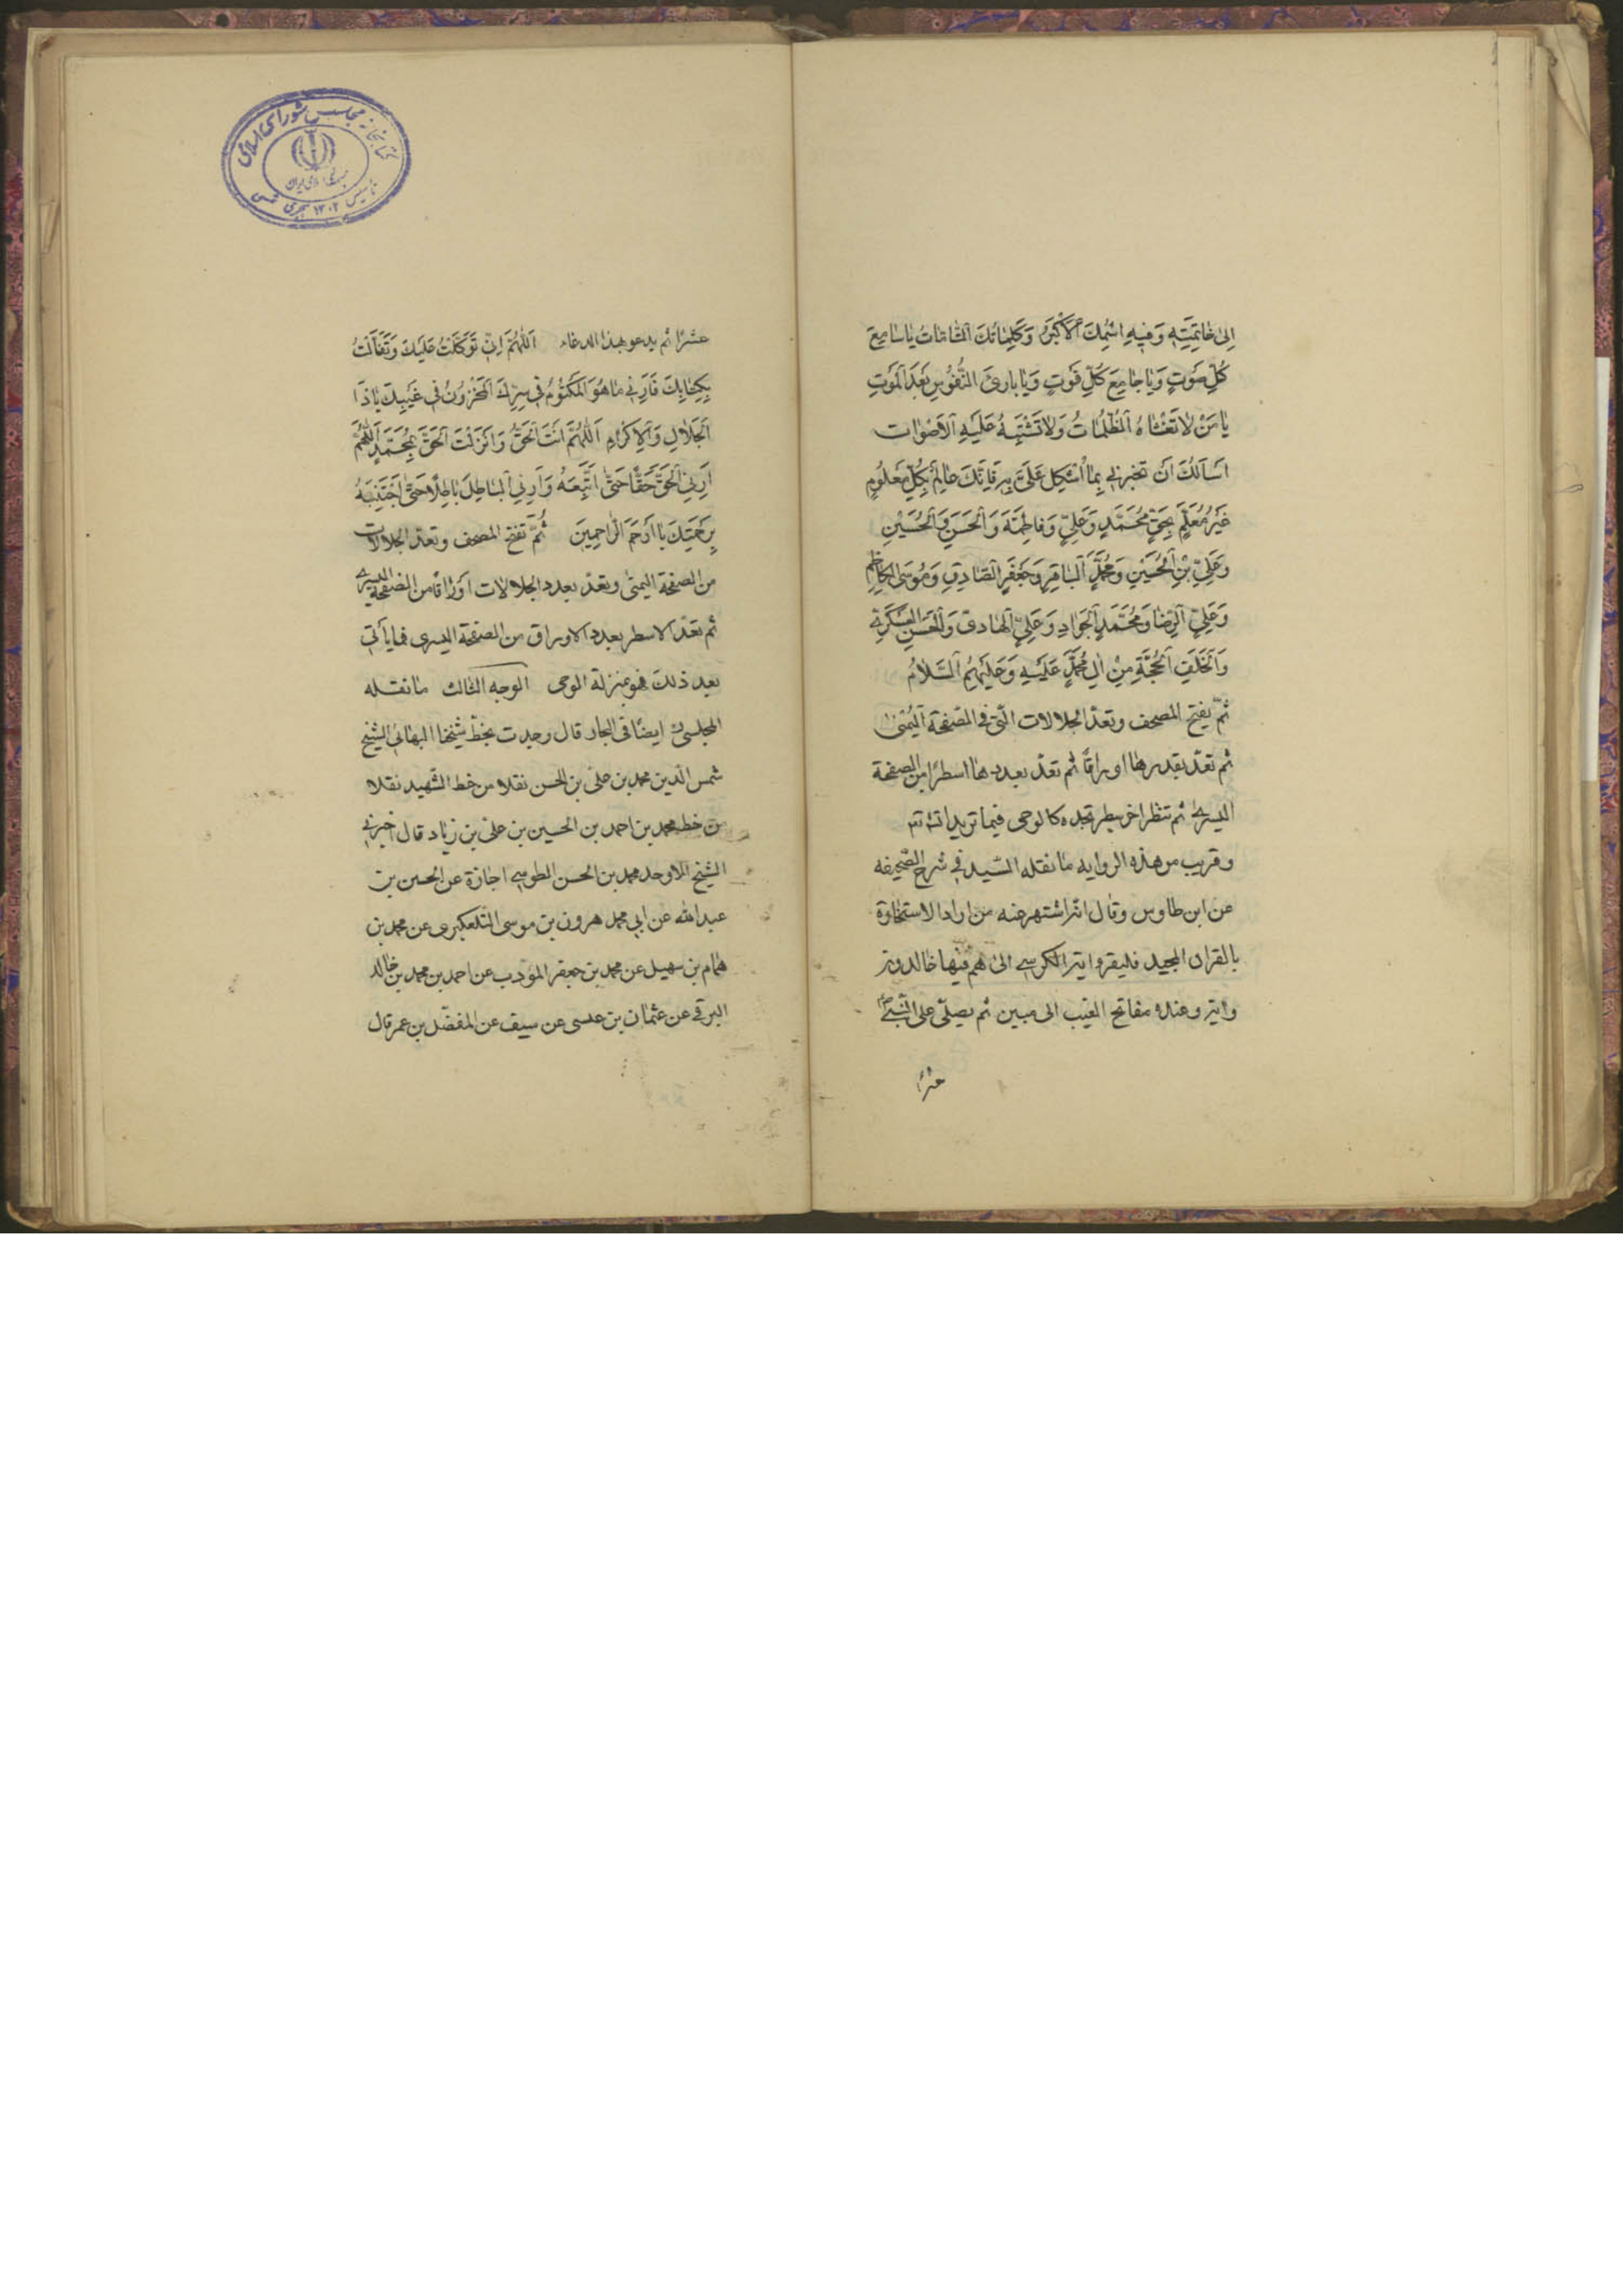 اِلىٰ خٰاتِمَتِهِ وَفيهِ اسْمُكَ الْاَكْبَرُ وَكَلِمٰاتُكَ التّٰامّٰاتُ يٰاسٰامِعَ
كُلِّ صَوْتٍ وَيٰا جٰامِعَ كُلِّ فَوْتٍ وَيٰا بارِئَ النُّفُوُسِ بَعْدَ الْمَوْتِ
يٰا مَنْ لاٰ تَغْشٰاهُ الْظُلُمٰاتُ وَلاٰ تَشْتَبِهُ عَلَيْهِ الْاَصْوٰات
اَسْاَلُكَ اَنْ تخبرني بِمٰا اُشْكِلَ عَلَىَّ بِهِ فَاِنَّكَ عٰالِمٌ بِكُلِّ مَعْلُومٍ
غَيْرُ مُعَلَّمٍ بِحَقِّ مُحَمَّدٍ وَعَلِيٍّ وَفٰاطِمَةَ وَالْحَسَنِ وَالْحُسَيْنِ
وَعَلِيِّ بْنِ الْحُسَيْنِ وَمُحَمَّدٍ الْبٰاقِرِ وَجَعْفَرٍ الصّٰادِقِ وَمُوسَى الْكٰاظِمِ
وَعَلِيٍّ الرِّضٰا وَمُحَمَّدٍ الْجَوٰادِ وَعَلِيٍّ الْهٰادى وَالْحَسَنِ الْعَسْكَرِيِّ
وَالْخَلَفِ الْحُجَّةِ مِنْ اٰلِ مُحَمَّدٍ عَلَيْهِ وَعَلَيْهِمُ السَّلاٰمُ
ثمّ يفتح المصحف وتعدّ الجلالات الّتى فى الصّفحة اليُمْنىٰ
ثم تعدّ بقدرها اوراقًا ثم تعدّ بعددها اسطرًا من الصفحة
اليسرى ثم تنظر اخر سطر تجده كالوحى فيما تريد انتهى
وقريب من هذه الروايه ما نقله السّيد فى شرح الصّحيفه
عن ابن طاوس وقال انّه اشتهر عنه من اراد الاستخارة
بالقران المجيد فليقروا اية الكرسى الى هم فيها خالدون
واية وعنده مفاتح الغيب الى مبين ثم يصلّى على النّبىّ
عشرًا
عشرًا ثم يدعو بهذا الدعاء اَللّٰهُمَّ اِنّى تَوَكَّلْتُ عَلَيْكَ وَتَفَاَّلْتُ
بِكِتٰابِكَ فَاَرِنى مٰا هُوَ الْمَكْتُوُمُ فى سِرِّكَ الْمَخْزُوُنُ فى غَيْبِكَ يٰا ذَا
الْجَلاٰلِ وَالْاِكْرٰامِ اَللّٰهُمَّ اَنْتَ الْحَقُّ وَاَنْزَلْتَ الْحَقَّ بِمُحَمَّدٍ اَللّٰهُمَّ
اَرِنِى الْحَقَّ حَقًّا حَتّىٰ اَتَّبِعَهُ وَاَرِنِى الْبٰاطِلَ بٰاطِلًا حَتّىٰ اَجْتَنِبَهُ
بِرَحْمَتِكَ يٰا اَرْحَمَ الرّٰاحِمِينَ ثُمَّ تفتح المصحف وتعدّ الجلالات
من الصفحة اليمنى وتعدّ بعدد الجلالات اوراقًا من الصّفحة اليسرى
ثم تعدّ الاسطر بعدد الاوراق من الصفحة اليسرى فما يأتى
بعد ذلك فهو بمنزلة الوحى الوجه الثالث ما نقله
المجلسىّ ايضًا فى البحار قال وجدت بخطّ شيخنا البهائى الشيخ
شمس الدّين محمد بن على بن الحسن نقلا من خط الشّهيد نقلا
من خط محمد بن احمد بن الحسين بن على بن زياد قال اخبرنى
الشيخ الاوحد محمد بن الحسن الطوسى اجازة عن الحسين بن
عبدالله عن ابى محمد هرون بن موسى التّلعكبرى عن محمد بن
همام بن سهيل عن محمد بن جعفر المؤدب عن احمد بن محمد بن خالد
البرقى عن عثمان بن عيسى عن سيف عن المفضّل بن عمر قال
كتابخانه مجلس شوراى اسلامى
جمهورى اسلامى ايران
تأسيس ١٣٠٢ هجرى شمسى